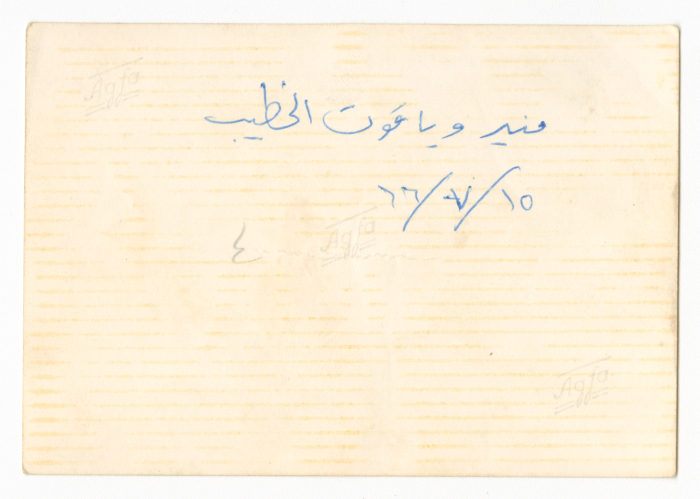 Agfa
منير وياقوت الخطيب
١٥/٧/٦٦
Agfa
٤
Agfa